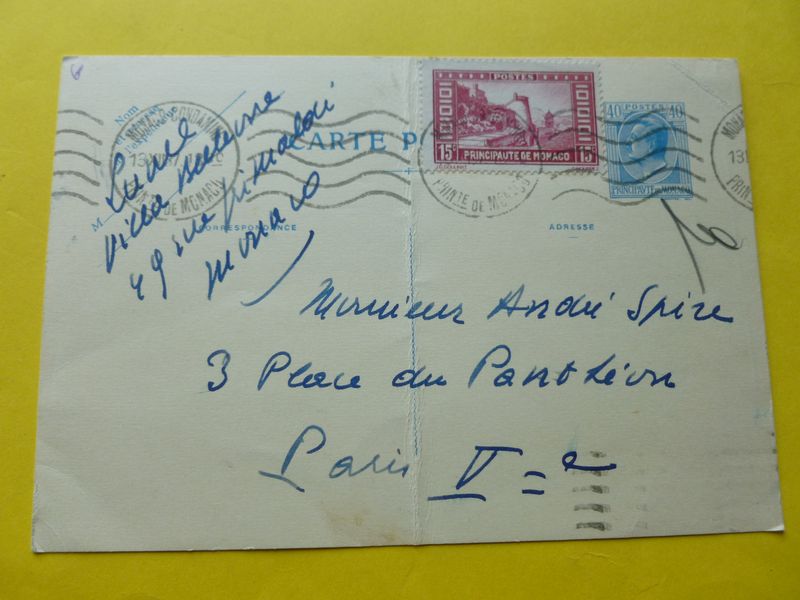 Nom
CARTE P
POSTES
15c 15c
PRINCIPAUTE DE MONACO
40 POSTES 40
PRINCIPAUTÉ DE MONACO
M
Lunel
Villa
49 rue Grimaldi
Monaco
CORRESPONDANCE
ADRESSE
PRINTE DE MONACO
Monsieur André Spire
3 Place du Panthéon
Paris V=e